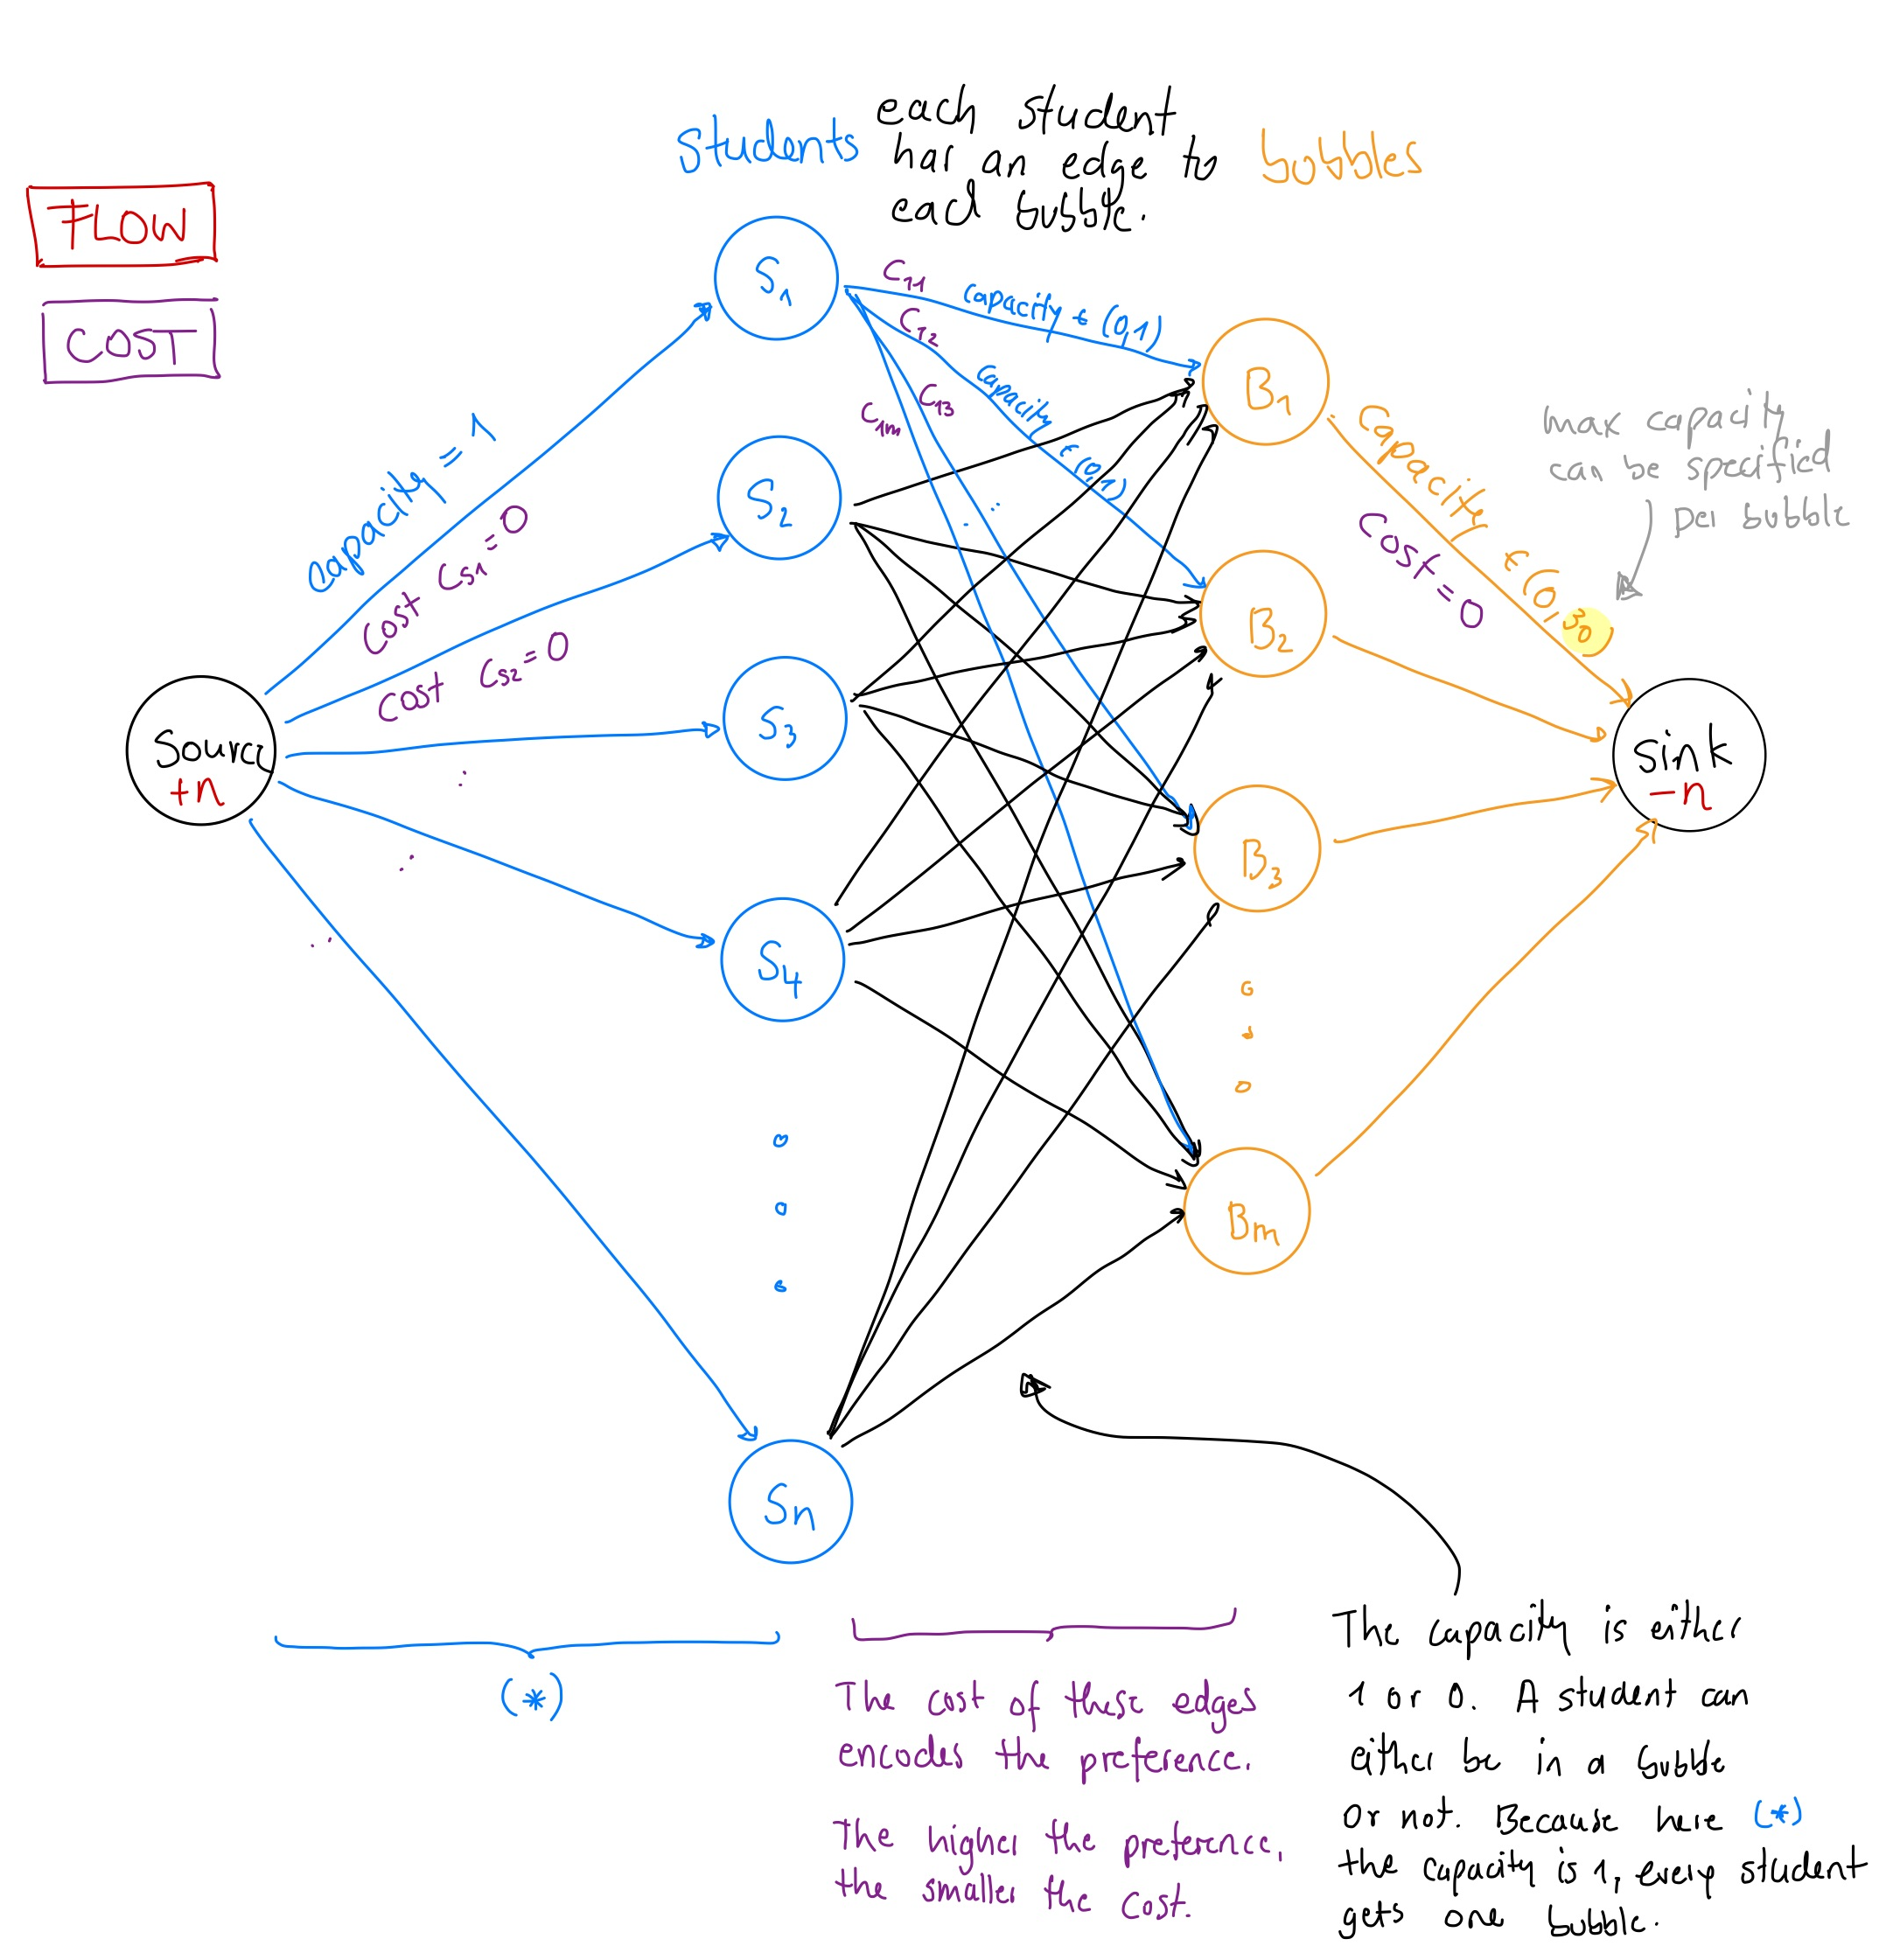 students
each student
has an edge to
each bubble.
bubbles
FLOW
COST
S1
S2
S3
S4
Sn
C11
C12
C13
C1m
capacity ∈ (0,1)
capacity ∈ (0,1)
B1
B2
B3
Bm
capacity = 1
cost Cs1 = 0
cost Cs2 = 0
Source
+n
capacity ∈ (0,30)
cost = 0
max capacity
can be specified
per bubble
sink
-n
(*)
The cost of these edges
encodes the preference.
The higher the preference,
the smaller the cost.
The capacity is either
1 or 0. A student can
either be in a bubble
or not. Because here (*)
the capacity is 1, every student
gets one bubble.